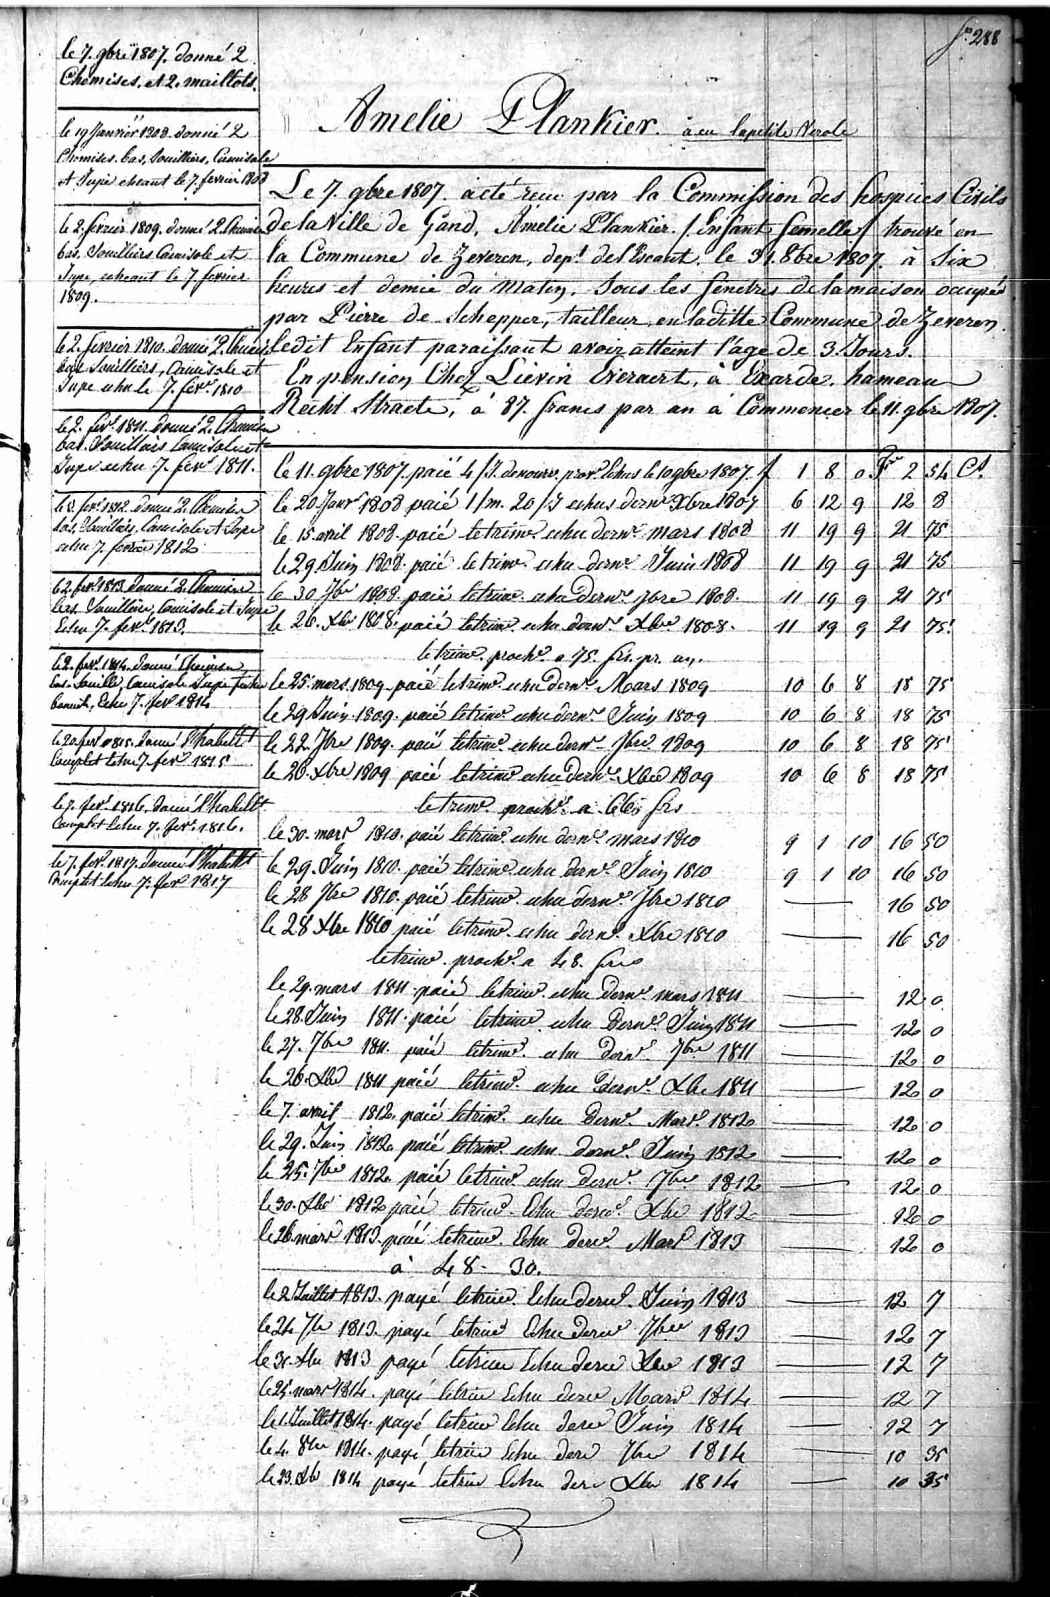 fo. 288
le 7. 9bre 1807. donné 2
Chemises. et 2. maillots.
le 19 Janvier 1808. donné 2
Chemises. bas, Souilliers, Camisole
et Jupe echeant le 7. fevrier 1808
le 2. fevrier 1809. donné 2. Chemises
bas. Souilliers Camisole et
Jupe, echeant le 7 fevrier
1809.
le 2. fevrier 1810. donné 2. Chemises
bas Souilliers, Camisole et
Jupe echu le 7. fevr. 1810
le 2. fevr. 1811. donné 2. Chemises
bas. Souilliers Camisole et
Jupe echu 7. fevr. 1811.
le 2. fevr. 1812. donné 2. Chemises
bas. Souilliers, Camisole et Jupe
echu 7. fevrier 1812
le 2. fevr. 1813 donné 2. Chemises
bas. Souilliers, Camisole et Jupe
Echu 7. fevr. 1813.
le 2. fevr. 1814. donné Chemises
bas. Souilliers, Camisole Jupe
Echu 7. fevr 1814
le 20. fevr. 1815. donné l'habillt
Complet echu 7. fevr. 1815
le 7. fevr. 1816. donné l'habillt
Complet echu 7. fevr. 1816.
le 7. fevr. 1817. donné l'habillt
Complet echu 7. fevr 1817
Amelie Plankier. à eu la petite Verole
Le 7. 9bre 1807. a été recu par la Commission des hospices Civils
de la Ville de Gand, Amelie Plankier. (Enfant femelle) trouvé en
la Commune de Zeveren, dept. de l'Escaut. le 31. 8bre 1807. à Six
heures et demie du matin. Sous les fenetres de la maison occupée
par Pierre de Schepper, tailleur, en laditte Commune de Zeveren.
Ledit Enfant paraissant avoir atteint l'age de 3. Jours.
En pension Chez Lievin Everaert, à Exarde. hameau
Recht Straete, à 87. francs par an à Commencer le 11. 9bre 1807.
le 11. 9bre 1807. paié 4 fs. de nourr. prov. Echus le 10 9bre 1807. f 1 8 0 Fr 2 54 Cs.
le 20. Janv 1808 paié 1/m. 20/j echus dernr. Xbre 1807 6 12 9 12 8
le 15 avril 1808. paié le trimr. echu dernr. mars 1808 11 19 9 21 75
le 29. Juin 1808. paié le trimr. echu dernr. Juin 1808 11 19 9 21 75
le 30. 7bre 1808. paié le trimr. echu dernr. 7bre 1808. 11 19 9 21 75
le 26. Xbre 1808. paié le trimr. echu dernr. Xbre 1808. 11 19 9 21 75.
le trimr. prochn. a 75. frs. pr. an.
le 25. mars. 1809. paié le trimr. echu dernr. Mars 1809 10 6 8 18 75
le 29 Juin. 1809. paié le trimr. echu dernr. Juin 1809 10 6 8 18 75
le 22. 7bre 1809. paié le trimr. echu dernr. 7bre 1809 10 6 8 18 75
le 26. Xbre 1809 paié le trimr. echu dernr. Xbre 1809 10 6 8 18 75
le trimr. prochn. a 66. frs
le 30. mars 1810. paié le trimr. echu dernr. mars 1810 9 1 10 16 50
le 29. Juin 1810. paié le trimr. echu dernr. Juin 1810 9 1 10 16 50
le 28 7bre 1810. paié le trimr. echu dernr. 7bre 1810 16 50
le 28 Xbre 1810 paié le trimr. echu dernr. Xbre 1810 16 50
le trimr. prochn. a 48. frs
le 29. mars 1811. paié le trimr. echu dernr. mars 1811 12 0
le 28. Juin 1811. paié le trimr. echu Dernr. Juin 1811 12 0
le 27. 7bre 1811. paié le trimr. echu dernr. 7bre 1811 12 0
le 26. Xbre 1811 paié le trimr. echu Dernr. Xbre 1811 12 0
le 7. avril 1812. paié le trimr. echu Dernr. Mars. 1812 12 0
le 29. Juin 1812. paié le trimr. echu. dernr. Juin 1812 12 0
le 25. 7bre 1812. paié le trimr. echu dernr. 7bre 1812 12 0
le 30. Xbre 1812 paié le trimr. Echu dernr. Xbre 1812 12 0
le 26 mars 1813. paié le trimr. Echu dernr. Mars 1813 12 0
à 48 - 30.
le 2 Juillet 1813. payé le trimr. Echu dernr. Juin 1813 12 7
le 24 7bre 1813. payé le trimr Echu dernr 7bre 1813 12 7
le 31. Xbre 1813 payé le trimr Echu dernr Xbre 1813 12 7
le 25. mars 1814. payé le trimr Echu dernr Mars 1814 12 7
le 1. Juillet 1814. payé le trimr Echu dernr Juin 1814 12 7
le 4. 8bre 1814. payé le trimr Echu dernr 7bre 1814 10 35
le 23. Xbre 1814 payé le trimr Echu dernr Xbre 1814 10 35